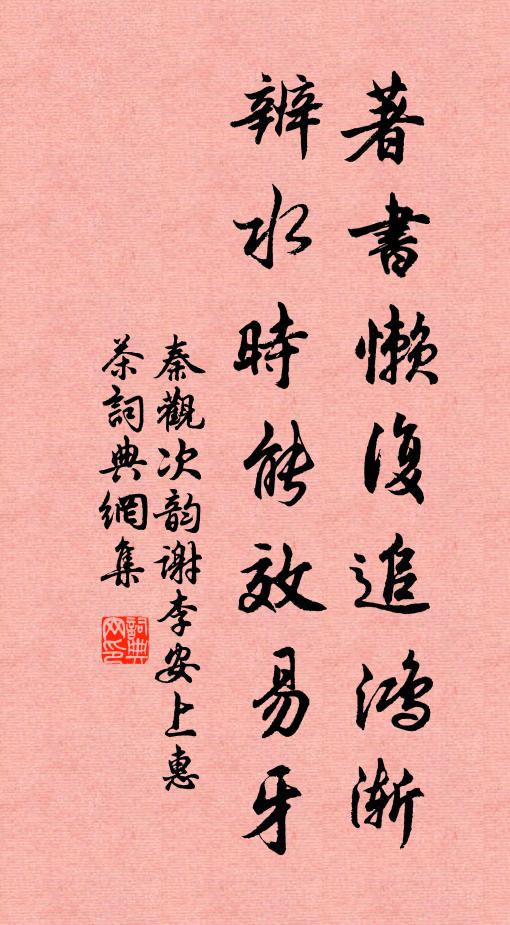 著書懶復追鴻漸
辨水時能效易牙
秦觀次韵謝李安上惠
茶詞典網集
詞典網印